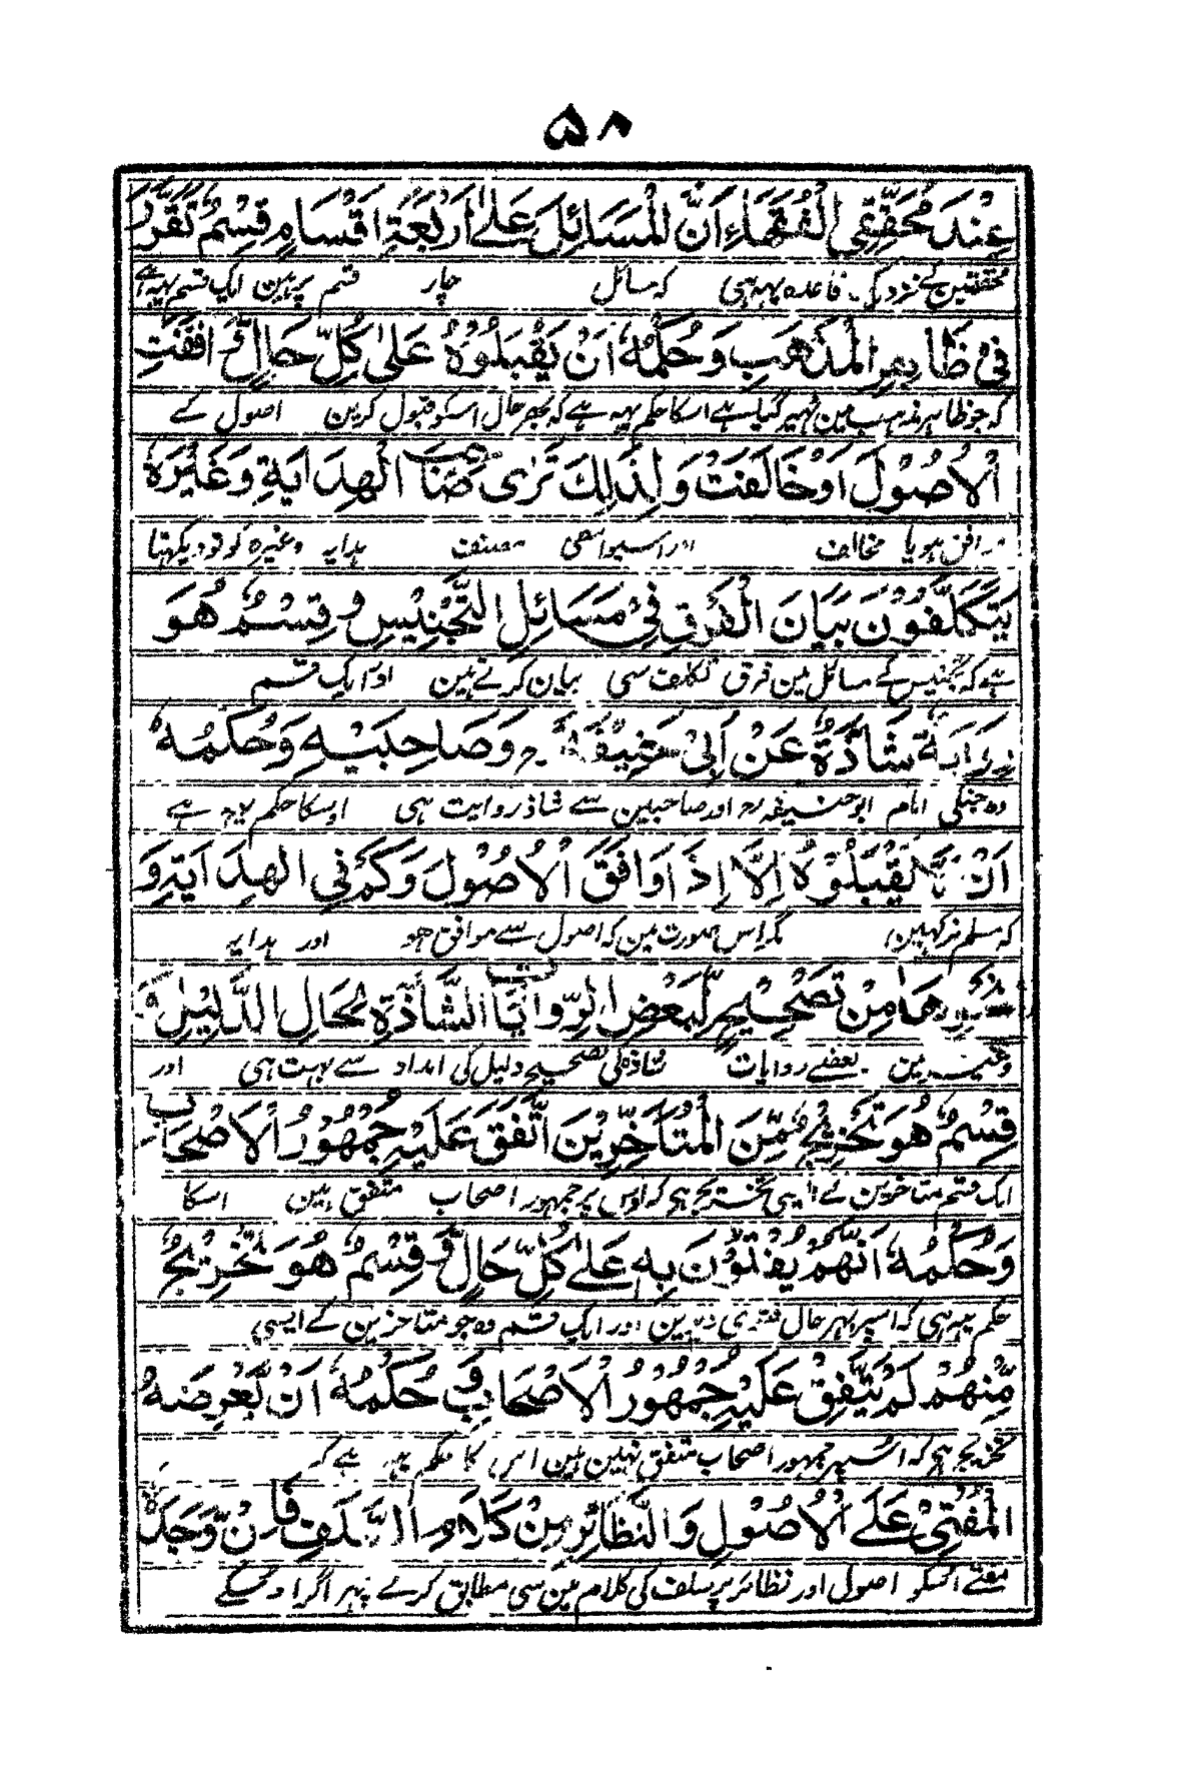 ۵۸
عِنْدَ مُحَقِّقِي الْفُقَهَاءِ اَنَّ الْمَسَائِلَ عَلٰى اَرْبَعَةِ اَقْسَامٍ قِسْمٌ تَقَرَّرَ
محققین کے نزدیک قاعدہ یہہ ہی کہ مسائل چار قسم پر ہین ایک قسم یہہ ہے
فِیْ ظَاهِرِ الْمَذْهَبِ وَحُكْمُهٗ اَنْ يَقْبَلُوْهُ عَلٰى كُلِّ حَالٍ وَافَقَتِ
کہ جو ظاہر مذہب مین ٹھہر گیا ہے اسکا حکم یہہ ہے کہ بہر حال اسکو قبول کرین اصول کے
الْاُصُوْلَ اَوْ خَالَفَتْ وَلِذٰلِكَ تَرٰى صَاحِبَ الْهِدَايَةِ وَغَيْرَهٗ
موافق ہو یا مخالف اور اسیواسطی مصنف ہدایہ وغیرہ کو تو دیکھتا
يَتَكَلَّفُوْنَ بَيَانَ الْفَرْقِ فِیْ مَسَائِلِ التَّجْنِيْسِ وَقِسْمٌ هُوَ
ہے کہ تجنیس کے مسائل مین فرق تکلف سی بیان کرتے ہین اور ایک قسم
رِوَايَةٌ شَاذَّةٌ عَنْ اَبِیْ حَنِيْفَةَ رح وَصَاحِبَيْهِ وَحُكْمُهٗ
وہ جنکی امام ابو حنیفہ رح اور صاحبین سے شاذ روایت ہی اوسکا حکم یہہ ہے
اَنْ لَّا يَقْبَلُوْهُ اِلَّا اِذَا وَافَقَ الْاُصُوْلَ وَكَمْ فِی الْهِدَايَةِ وَ
کہ مسلم نرکہین مگر اس صورت مین کہ اصول سے موافق ہو اور ہدایہ
نَحْوِهَا مِنْ تَصْحِيْحٍ لِّبَعْضِ الرِّوَايَاتِ الشَّاذَّةِ لِحَالِ الدَّلِيْلِ وَ
وغیرہ مین بعضے روایات شاذہ کی تصحیح دلیل کی امداد سے بہت ہی اور
قِسْمٌ هُوَ تَخْرِيْجٌ مِّنَ الْمُتَاَخِّرِيْنَ اتَّفَقَ عَلَيْهِ جُمْهُوْرُ الْاَصْحَابِ
ایک قسم متاخرین کے ایسی تخریج ہی کہ اوس پر جمہور اصحاب متفق ہین اسکا
وَحُكْمُهٗ اَنَّهُمْ يُفْتُوْنَ بِهٖ عَلٰى كُلِّ حَالٍ وَقِسْمٌ هُوَ تَخْرِيْجٌ
حکم یہہ ہی کہ اسپر بہر حال فتوی دیوین اور ایک قسم وہ جو متاخرین کے ایسی
مِّنْهُمْ لَمْ يَتَّفِقْ عَلَيْهِ جُمْهُوْرُ الْاَصْحَابِ وَحُكْمُهٗ اَنْ يَّعْرِضَهُ
تخریج ہی کہ اسپر جمہور اصحاب متفق نہین ہین اس کا حکم یہہ ہے کہ
الْمُفْتِیْ عَلَى الْاُصُوْلِ وَالنَّظَائِرِ مِنْ كَلَامِ السَّلَفِ فَاِنْ وَّجَدَهٗ
مفتے اسکو اصول اور نظائر پر سلف کی کلام مین سی مطابق کرے پہر اگر اوسکے